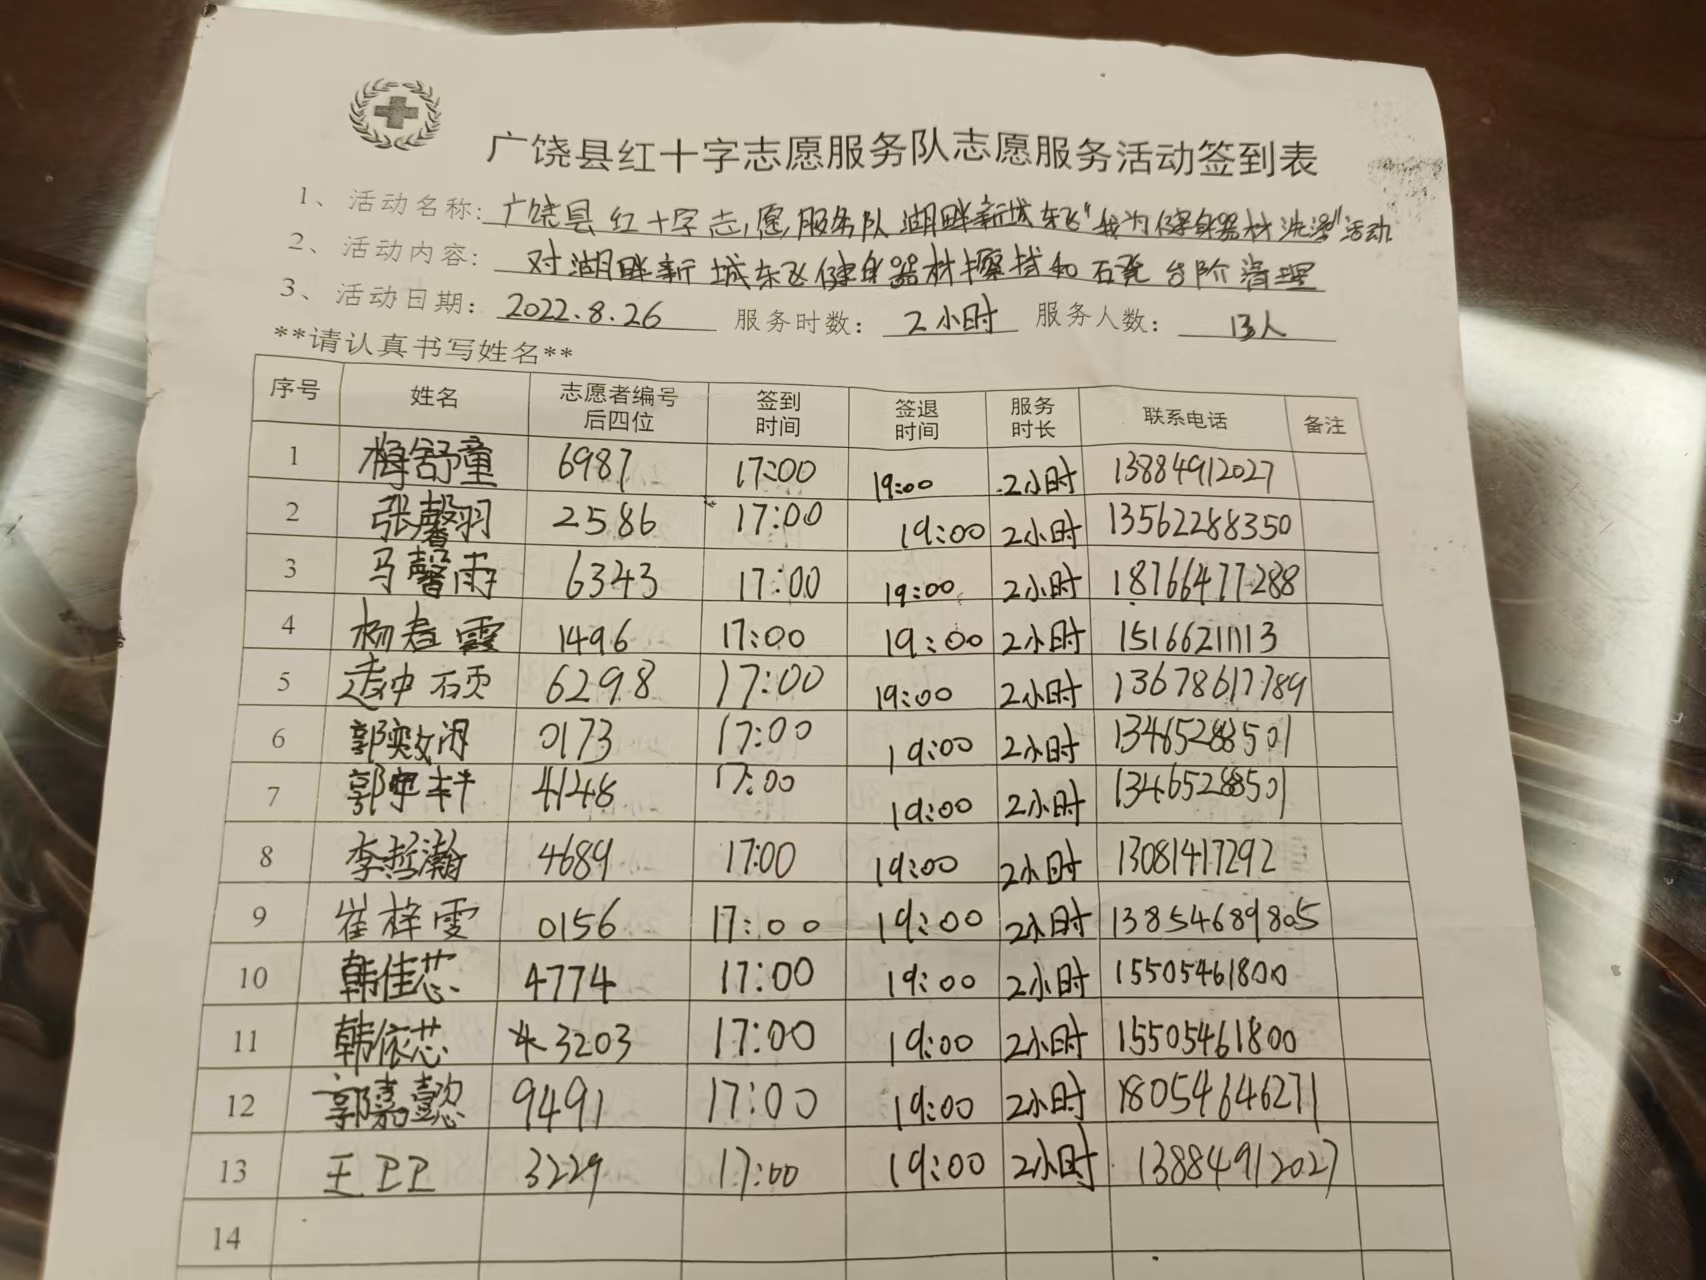 广饶县红十字志愿服务队志愿服务活动签到表
1、活动名称:广饶县红十字志愿服务队湖畔新城东飞"我为健身器材洗澡"活动
2、活动内容:对湖畔新城东飞健身器材擦拭和石凳台阶清理
3、活动日期:2022.8.26 服务时数:2小时 服务人数:13人
**请认真书写姓名**
序号 姓名 志愿者编号后四位 签到时间 签退时间 服务时长 联系电话 备注
1 梅舒童 6987 17:00 19:00 2小时 13884912027
2 张馨羽 2586 17:00 19:00 2小时 13562288350
3 马馨雨 6343 17:00 19:00 2小时 18766477288
4 杨春霞 1496 17:00 19:00 2小时 15166211113
5 硕 6298 17:00 19:00 2小时 13678617789
6 郭 6173 17:00 19:00 2小时 13465288501
7 郭 4148 17:00 19:00 2小时 13465288501
8 李哲瀚 4689 17:00 19:00 2小时 13081417292
9 崔梓雯 0156 17:00 19:00 2小时 13854689805
10 韩佳芯 4774 17:00 19:00 2小时 15505461800
11 韩依芯 3203 17:00 19:00 2小时 15505461800
12 郭嘉懿 9491 17:00 19:00 2小时 18054646271
13 王卫卫 3229 17:00 19:00 2小时 13884912027
14